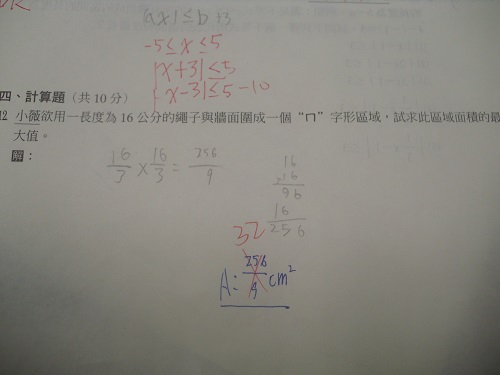 |ax|≤b+3
-5≤x≤5
|x+3|≤5
|x-3|≤5-10
四、計算題（共 10 分）
12 小薇欲用一長度為 16 公分的繩子與牆面圍成一個“ㄇ”字形區域，試求此區域面積的最
大值。
解：
16/3 × 16/3 = 256/9
16
×16
96
16
256
32
A: 256/9 cm²